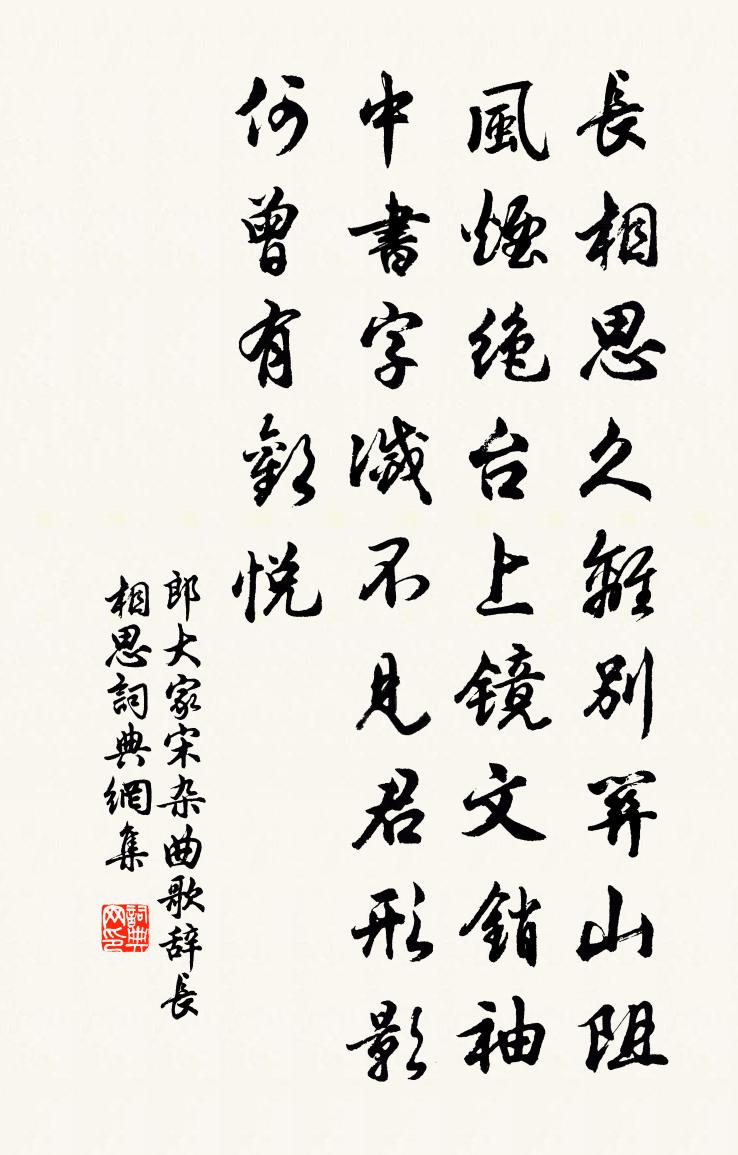 長相思久離別關山阻
風煙绝台上镜文銷袖
中書字滅不見君形影
何曾有歡悦
郎大家宋杂曲歌辞長
相思詞典網集
詞典
网印